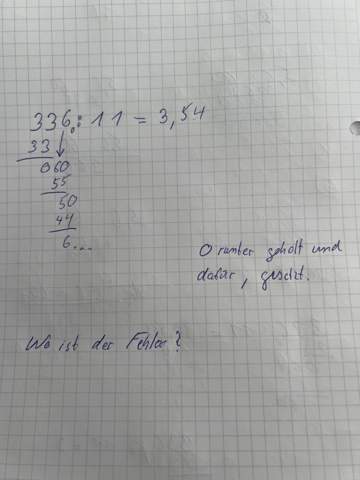 336,: 11 = 3,54
33
060
55
50
44
6...
0 runter geholt und
dafür , gesetzt.
Wo ist der Fehler?